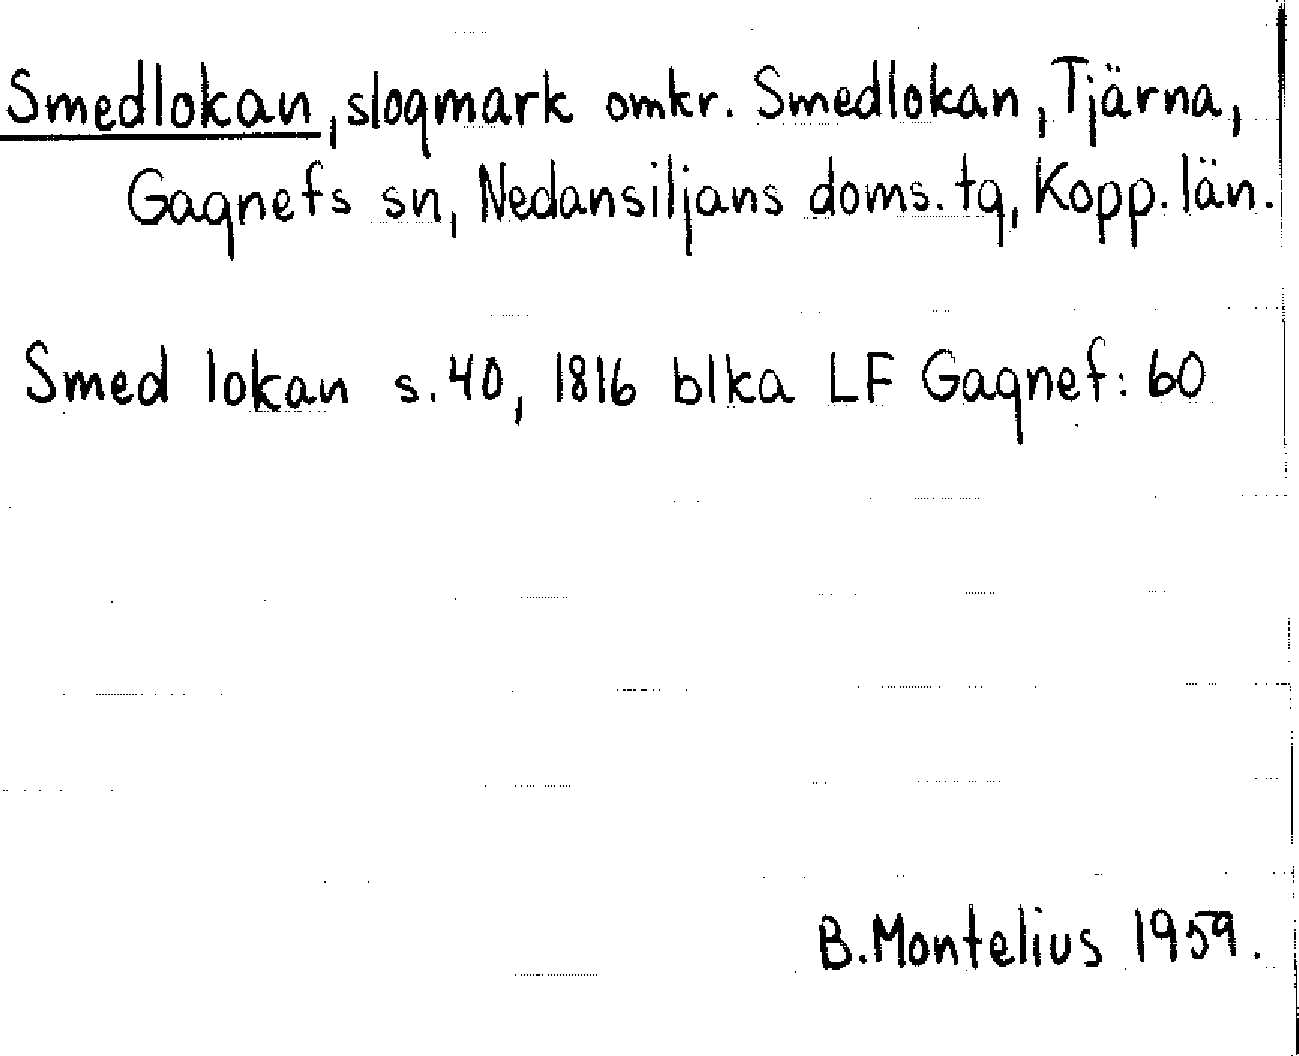 Smedlokan, slogmark omkr. Smedlokan, Tjärna,
Gagnefs sn, Nedansiljans doms. tg, Kopp. län.
Smed lokan s. 40, 1816 blka LF Gagnef: 60
B. Montelius 1959.